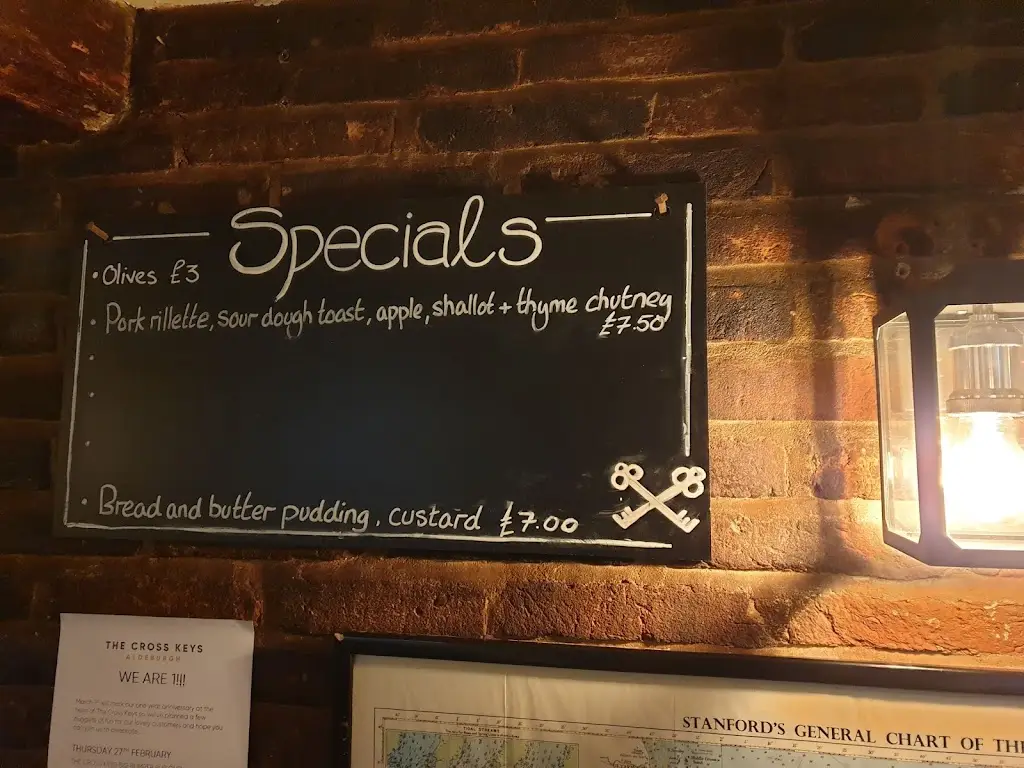 Specials
• Olives £3
• Pork rillette, sour dough toast, apple, shallot + thyme chutney
£7.50
•
•
•
• Bread and butter pudding, custard £7.00
THE CROSS KEYS
ALDEBURGH
WE ARE 1!!!
THURSDAY 27TH FEBRUARY
STANFORD'S GENERAL CHART OF THE
TIDAL STREAMS